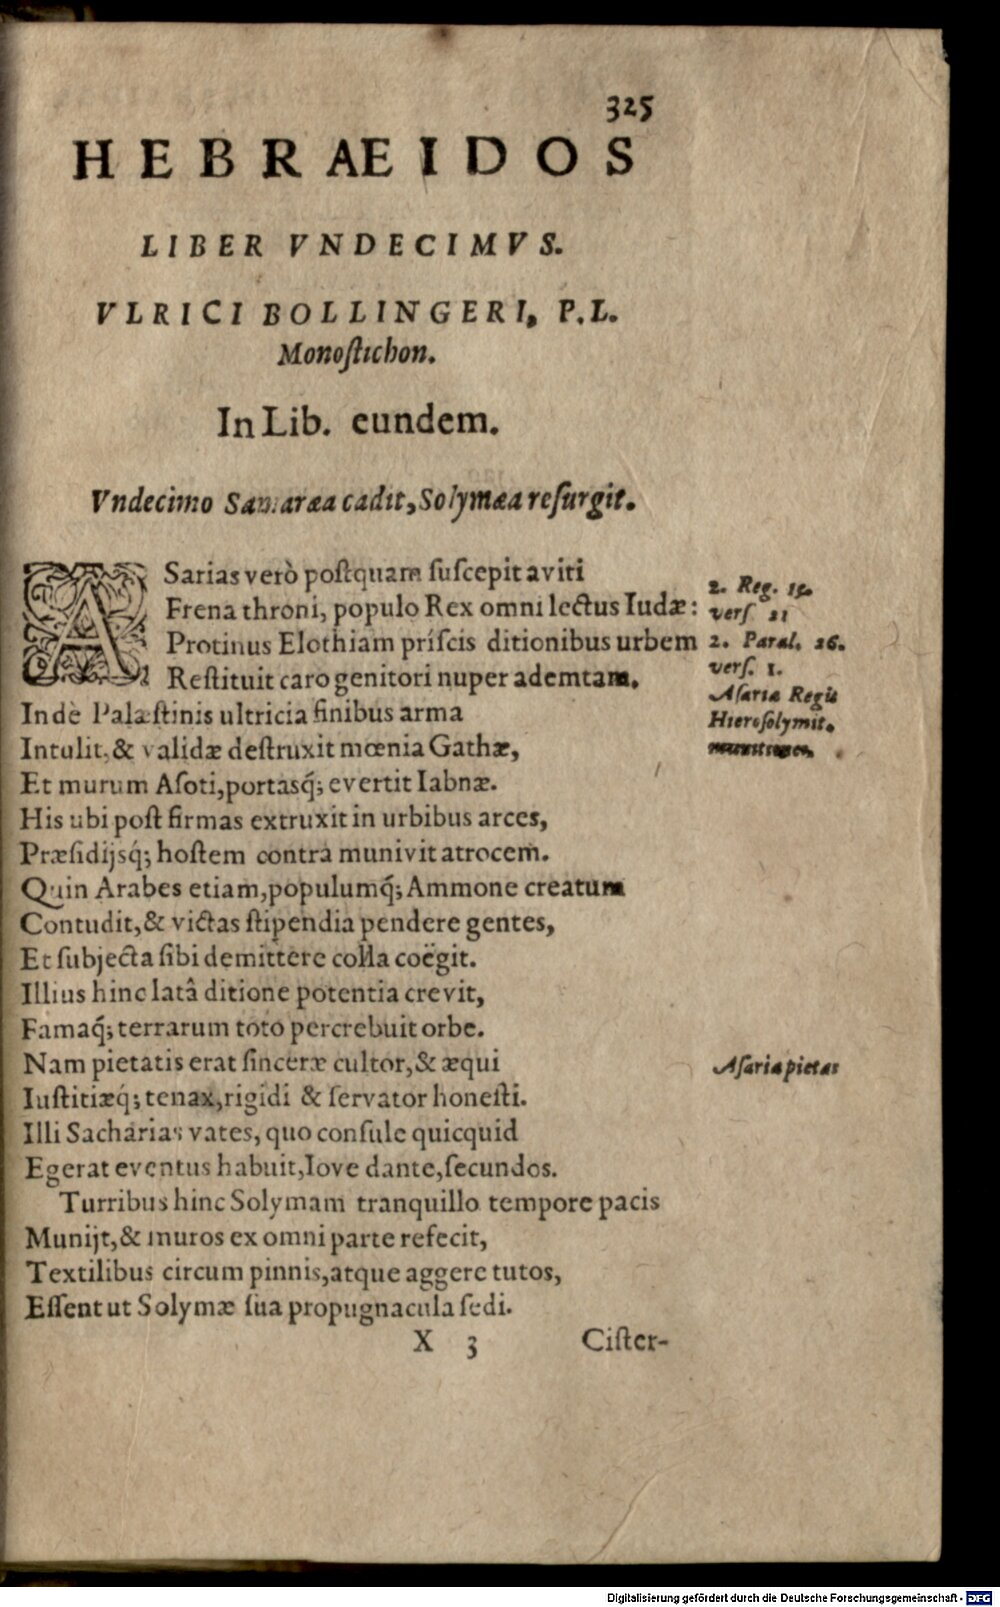 325
HEBRAEIDOS
LIBER VNDECIMVS.
VLRICI BOLLINGERI, P.L.
Monoſtichon.
In Lib. eundem.
Vndecimo Samaræa cadit, Solymæa reſurgit.
ASarias verò poſtquam ſuſcepit aviti
Frena throni, populo Rex omni lectus Iudæ:
Protinus Elothiam príſcis ditionibus urbem
Reſtituit caro genitori nuper ademtam.
Indè Palæſtinis ultricia finibus arma
Intulit, & validæ deſtruxit mœnia Gathæ,
Et murum Aſoti, portasq́; evertit Iabnæ.
His ubi poſt firmas extruxit in urbibus arces,
Præſidijsq́; hoſtem contra munivit atrocem.
Quin Arabes etiam, populumq́; Ammone creatum
Contudit, & victas ſtipendia pendere gentes,
Et ſubjecta ſibi demittere colla coëgit.
Illius hinc latâ ditione potentia crevit,
Famaq́; terrarum toto percrebuit orbe.
Nam pietatis erat ſinceræ cultor, & æqui
Iuſtitiæq́; tenax, rigidi & ſervator honeſti.
Illi Sacharias vates, quo conſule quicquid
Egerat eventus habuit, Iove dante, ſecundos.
Turribus hinc Solymam tranquillo tempore pacis
Munijt, & muros ex omni parte refecit,
Textilibus circum pinnis, atque aggere tutos,
Eſſent ut Solymæ ſua propugnacula ſedi.
X 3 Ciſter-
2. Reg. 15.
verſ. 21
2. Paral. 26.
verſ. 1.
Aſariæ Regis
Hieroſolymit.
Aſariæ pietas
Digitalisierung gefördert durch die Deutsche Forschungsgemeinschaft - DFG